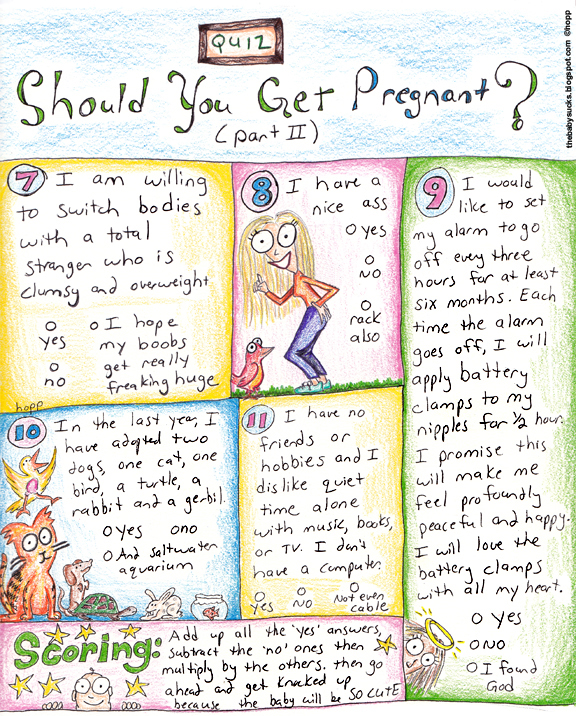 QUIZ
Should You Get Pregnant?
(part II)
thebabysucks.blogspot.com @hopp
7 I am willing
to switch bodies
with a total
stranger who is
clumsy and overweight
O yes
O no
O I hope
my boobs
get really
freaking huge
hopp
8 I have a
nice ass
O yes
O NO
O rack
also
9 I would
like to set
my alarm to go
off every three
hours for at least
six months. Each
time the alarm
goes off, I will
apply battery
clamps to my
nipples for 1/2 hour.
I promise this
will make me
feel profoundly
peaceful and happy.
I will love the
battery clamps
with all my heart.
O yes
O NO
O I found
God
10 In the last year, I
have adopted two
dogs, one cat, one
bird, a turtle, a
rabbit and a gerbil.
O yes O no
O And saltwater
aquarium
11 I have no
friends or
hobbies and I
dislike quiet
time alone
with music, books,
or TV. I don't
have a computer.
O yes
O NO
O Not even
cable
Scoring: Add up all the 'yes' answers,
subtract the 'no' ones then
multiply by the others. then go
ahead and get knocked up
because the baby will be SO CUTE